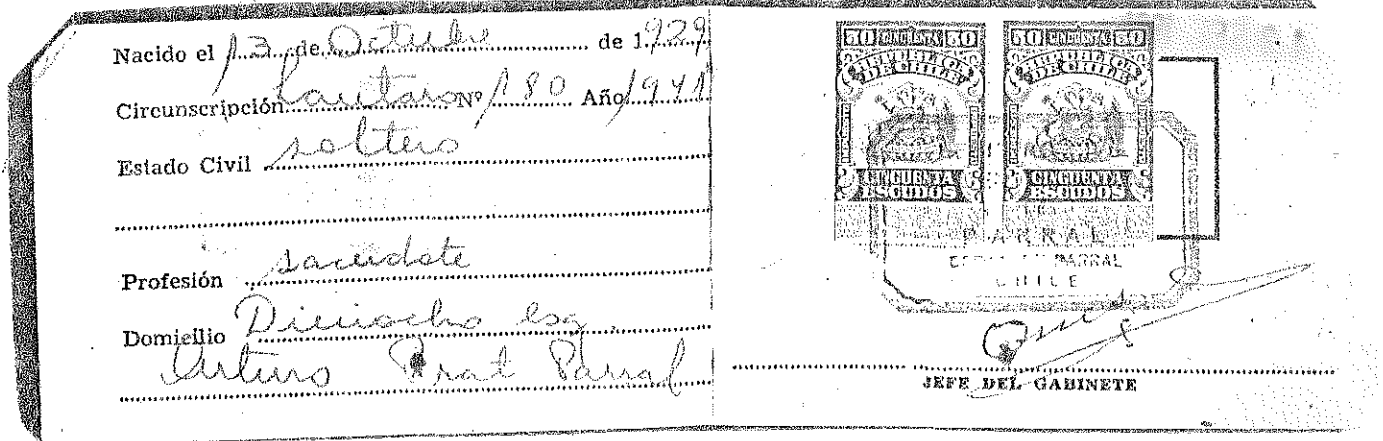 Nacido el 13 de Octubre de 1929
Circunscripción Lautaro Nº 180 Año 1941
Estado Civil soltero
Profesión sacerdote
Domicilio Dieciocho esq.
Arturo Prat Parral
50 50
REPUBLICA
DE CHILE
CINCUENTA
ESCUDOS
50 50
REPUBLICA
DE CHILE
CINCUENTA
ESCUDOS
PARRAL
PARRAL
CHILE
JEFE DEL GABINETE